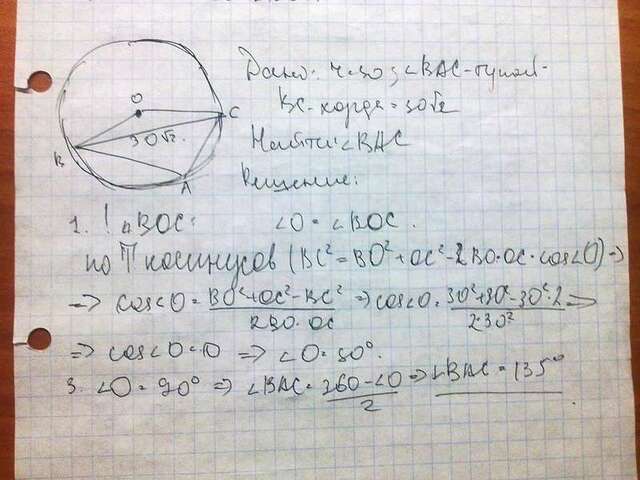 O
C
30√2.
B
A
Дано: r=30; ∠BAC-тупой-
BC-хорда=30√2
Найти: ∠BAC
Решение:
1. ! △BOC: ∠O=∠BOC.
по T косинусов (BC²=BO²+OC²-2BO·OC·cos∠O) =>
=> cos∠O = BO²+OC²-BC² / 2BO·OC => cos∠O = 30²+30²-30²·2 / 2·30² =>
=> cos∠O=0 => ∠O=90°.
3. ∠O=90° => ∠BAC = 360-∠O / 2 => ∠BAC=135°